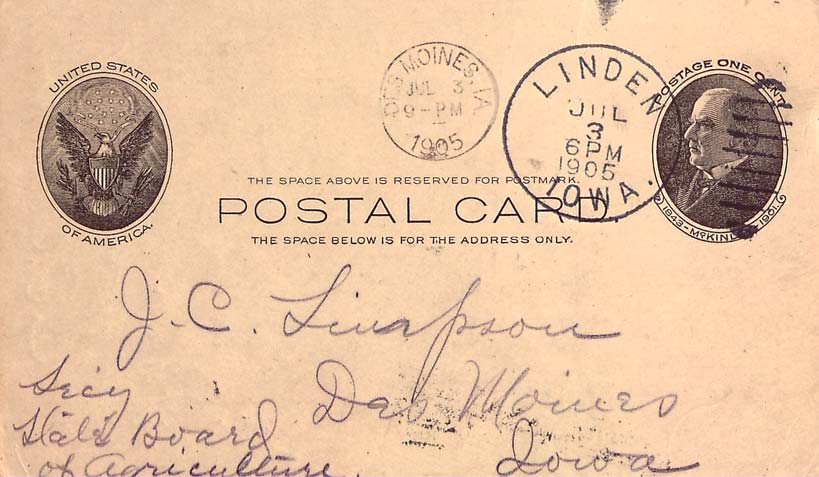 UNITED STATES
OF AMERICA.
DES MOINES, IA
JUL 3
9-PM
1905
LINDEN
JUL
3
6PM
1905
IOWA.
POSTAGE ONE CENT
1843-McKINLEY-1901.
THE SPACE ABOVE IS RESERVED FOR POSTMARK.
POSTAL CARD.
THE SPACE BELOW IS FOR THE ADDRESS ONLY.
J. C. Simpson
Secy
Des Moines
State Board
of Agriculture.
Iowa